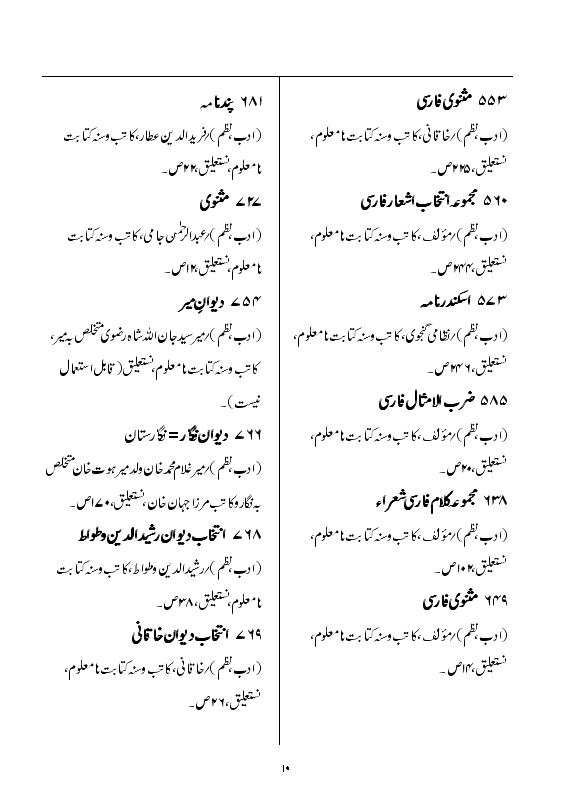 ۵۵۳ مثنوی فارسی
(ادب،نظم)/خاقانی،کاتب وسنہ کتابت نامعلوم،
نستعلیق،۲۲۵ص۔
۵۶۰ مجموعہ انتخاب اشعار فارسی
(ادب،نظم)/مؤلف،کاتب وسنہ کتابت نامعلوم،
نستعلیق،۲۴۴ص۔
۵۷۳ اسکندرنامہ
(ادب،نظم)/نظامی گنجوی،کاتب وسنہ کتابت نامعلوم،
نستعلیق،۲۴۶ص۔
۵۸۵ ضرب الامثال فارسی
(ادب،نظم)/مؤلف،کاتب وسنہ کتابت نامعلوم،
نستعلیق،۲۰ص۔
۶۳۸ مجموعہ کلام فارسی شعراء
(ادب،نظم)/مؤلف،کاتب وسنہ کتابت نامعلوم،
نستعلیق،۱۰۲ص۔
۶۴۹ مثنوی فارسی
(ادب،نظم)/مؤلف،کاتب وسنہ کتابت نامعلوم،
نستعلیق،۱۴ص۔
۶۸۱ پندنامہ
(ادب،نظم)/فریدالدین عطار،کاتب وسنہ کتابت
نامعلوم،نستعلیق،۲۲ص۔
۷۲۷ مثنوی
(ادب،نظم)/عبدالرحمٰن جامی،کاتب وسنہ کتابت
نامعلوم،نستعلیق،۱۲ص۔
۷۵۴ دیوانِ میر
(ادب،نظم)/میرسیدجان اللہ شاہ رضوی متخلص بہ میر،
کاتب وسنہ کتابت نامعلوم،نستعلیق(قابل استعمال
نیست)۔
۷۶۶ دیوان نگار=نگارستان
(ادب،نظم)/میرغلام محمدخان ولد میر ہوت خان متخلص
بہ نگاروکاتب مرزا جہان خان،نستعلیق،۱۷۰ص۔
۷۶۸ انتخاب دیوان رشیدالدین وطواط
(ادب،نظم)/رشیدالدین وطواط،کاتب وسنہ کتابت
نامعلوم،نستعلیق،۳۸ص۔
۷۶۹ انتخاب دیوان خاقانی
(ادب،نظم)/خاقانی،کاتب وسنہ کتابت نامعلوم،
نستعلیق،۲۶ص۔
۱۰